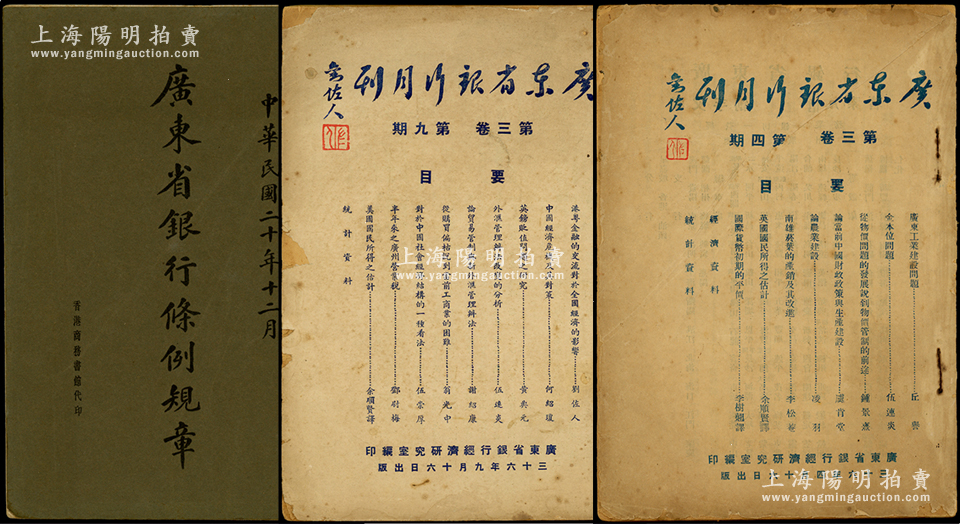 上海陽明拍賣
www.yangmingauction.com
中華民國二十年十二月
廣東省銀行條例規章
香港商務書館代印
上海陽明拍賣
www.yangmingauction.com
廣東省銀行月刊
第三卷 第九期
要目
港粤金融的交流對於全國經濟的影響 劉佐人
中國經濟 對策 何紹瓊
英鎊貶值問 究 黃典元
外滙管理辦 的分析 伍連炎
論貿易管制 滙管理辦法 謝紹康
從購買 前工商業的困難 翁光中
對於中國社 經 結構的一種看法 伍
半年來之廣州營 税 鄧尉梅
美國國民所得之估計 余順賢譯
統計資料
廣東省銀行經濟研究室編印
三十六年九月十六日出版
廣東省銀行月刊
第三卷 第四期
要目
廣東工業建設問題 丘
金本位問題 伍連炎
從物價問題的發展說到物價管制的前途 鍾景
論當前中國財政政策與生產建設 堂
論農業建設 凌羽
南雄菸葉的產銷及其改進 李松
英國國民所得之估計 余順賢譯
國際貨幣初期的平價 李樹 譯
經濟資料
統計資料
廣東省銀行經濟研究室編印
三十六年四月十六日出版
上海陽明拍賣
www.yangmingauction.com